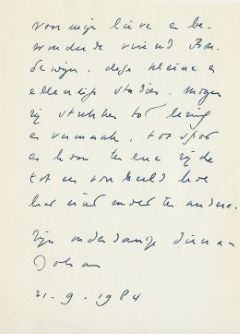 voor mijn lieve en be-
wonderde vriend Bou-
dewijn. deze kleine en
ellendige studies. mogen
zij strekken tot lering
en vermaak, tot spot
en hoon ten ene zijde
tot een voorbeeld hoe
het niet moet ten andere.
zijn onderdanige dienaar
Johan
21. 9. 1984